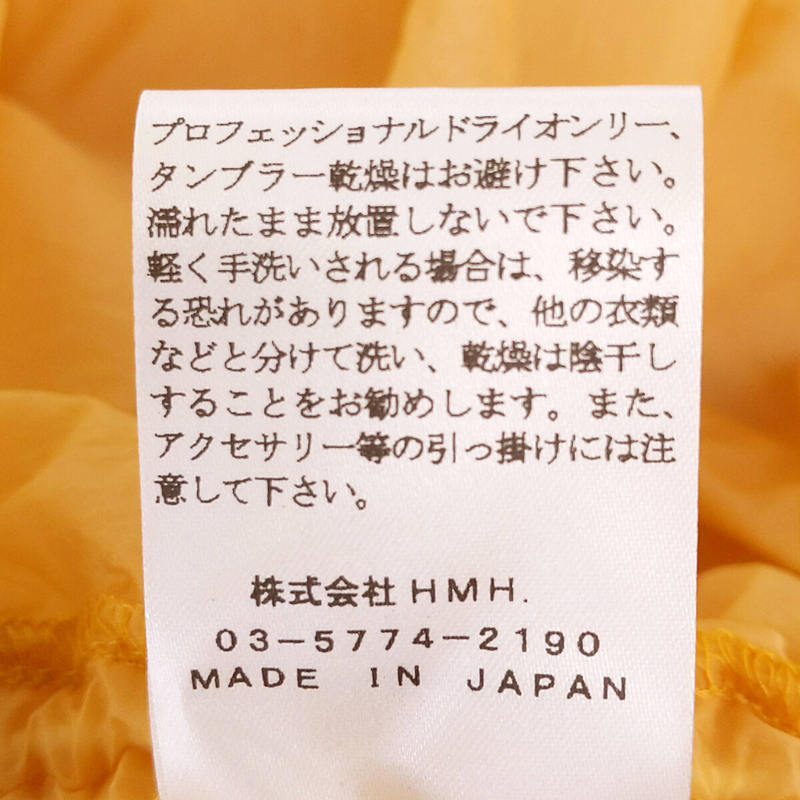 プロフェッショナルドライオンリー、
タンブラー乾燥はお避け下さい。
濡れたまま放置しないで下さい。
軽く手洗いされる場合は、移染す
る恐れがありますので、他の衣類
などと分けて洗い、乾燥は陰干し
することをお勧めします。また、
アクセサリー等の引っ掛けには注
意して下さい。
株式会社HMH.
03-5774-2190
MADE IN JAPAN